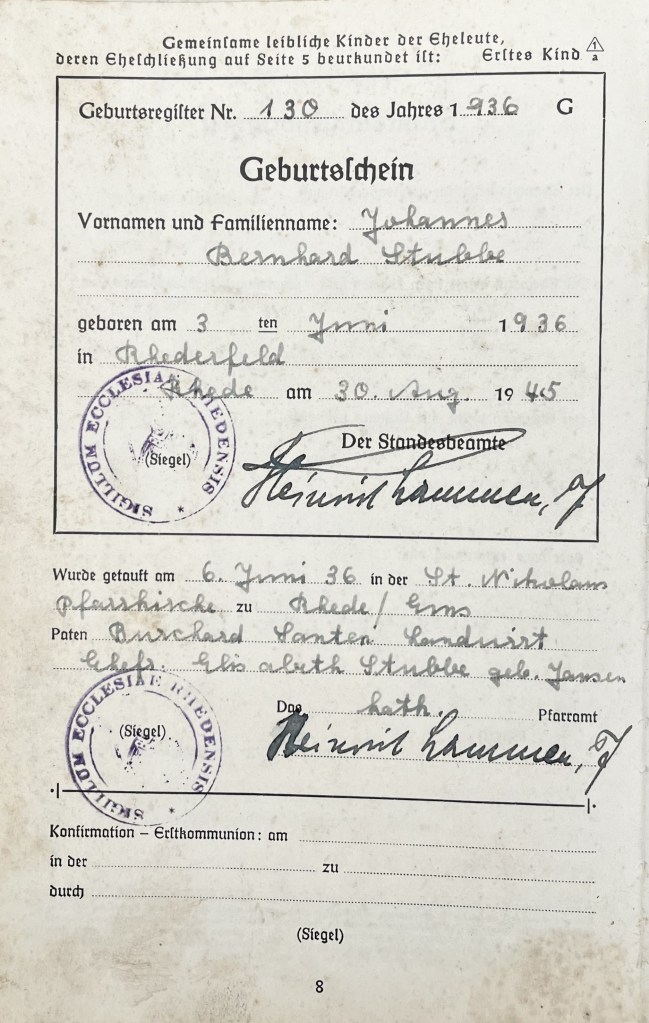 Gemeinsame leibliche Kinder der Eheleute,
deren Eheschließung auf Seite 5 beurkundet ist: Erstes Kind 1 a
Geburtsregister Nr. 130 des Jahres 1936 G
Geburtsschein
Vornamen und Familienname: Johannes
Bernhard Stubbe
geboren am 3 ten Juni 1936
in Rhederfeld
Rhede am 30. Aug. 1945
SIGILLUM ECCLESIAE RHEDENSIS *
(Siegel)
Der Standesbeamte
Heinrich Lammen,
Wurde getauft am 6. Juni 36 in der St. Nikolaus
Pfarrkirche zu Rhede/Ems
Paten Burchard Santen Landwirt
Ehefr. Elisabeth Stubbe geb. Jansen
SIGILLUM ECCLESIAE RHEDENSIS *
(Siegel)
Das kath. Pfarramt
Heinrich Lammen,
Konfirmation – Erstkommunion: am
in der zu
durch
(Siegel)
8